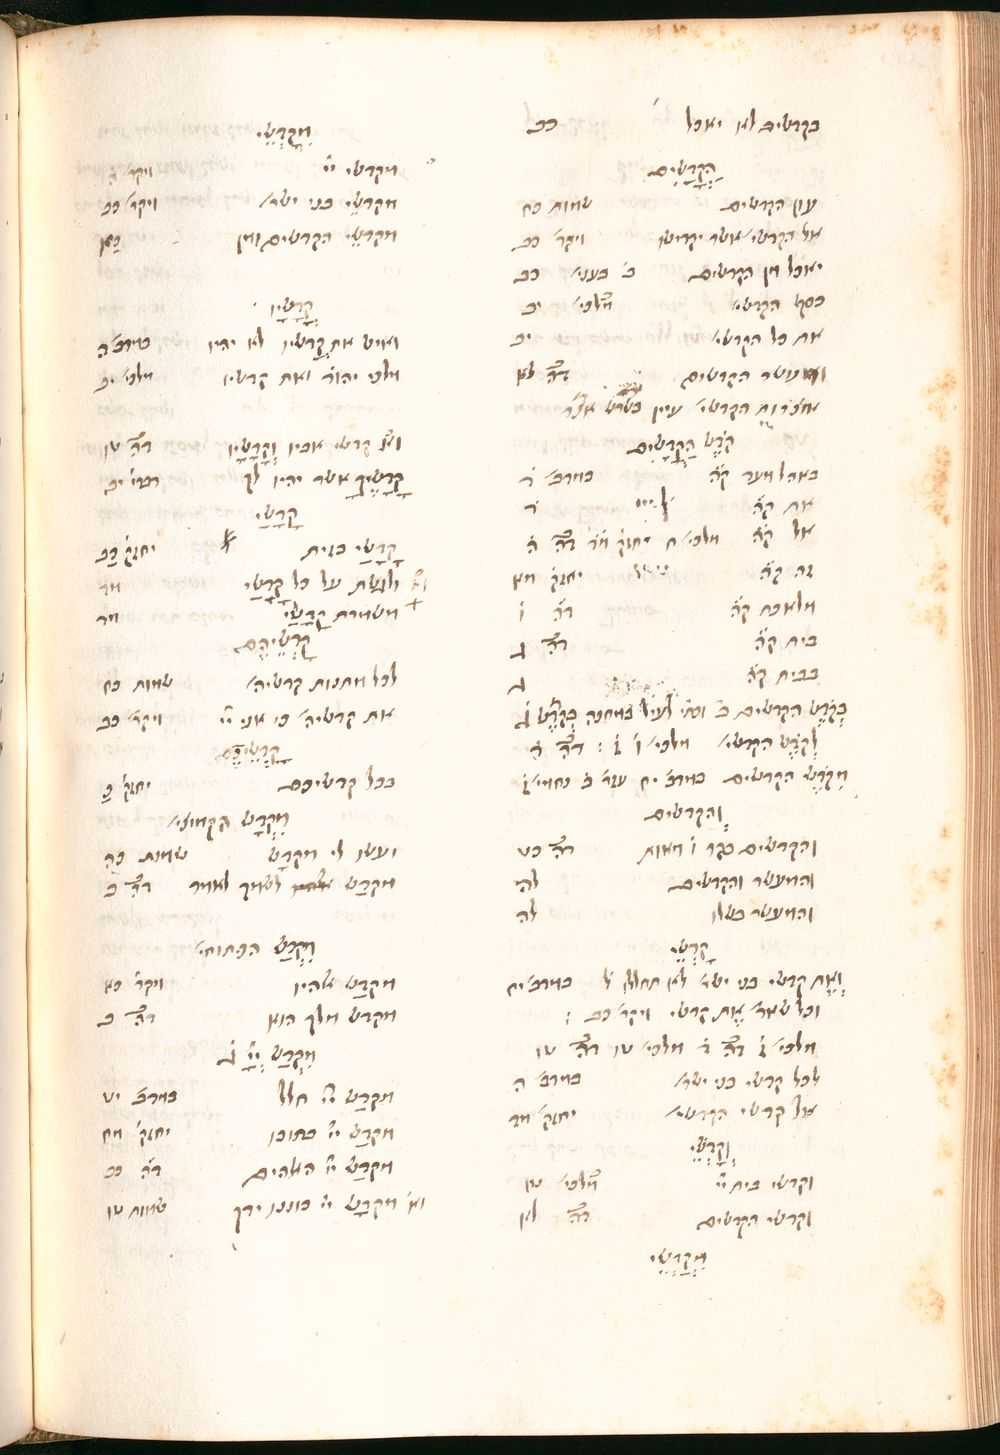 בקדשים לא יאכל כב
הקדשים
עון הקדשים שמות כח
אל הקדשי׳ אשר יקדישו ויקר׳ כב
יאכל מן הקדשים ב׳ בעני׳ כב
כסף הקדשי׳ מ״ב מלכי׳ יב
את כל הקדשי׳ יב
ומעשר הקדשים ד״ה לא
אוצרות הקדשי׳ עיין בשרש אצר
קדש הקדשים
באהל מועד ק״ה במדב׳ ד
את ק״ה ד
אל ק״ה מלכי׳ ח יחזק׳ מד ד״ה ה
זה ק״ה יחזק׳ מא
מלאכת ק״ה ד״ה ו
בית ק״ה ד״ה ג
בבית ק״ה
בקדש הקדשים
לקדש הקדשי׳ מלכי׳ ו ז׃ ד״ה ה
מקדש הקדשים במדב׳ יח עזר׳ ב נחמי׳ ז
והקדשים
והקדשים בקר ו מאות ד״ה כט
והמעשר והקדשים לה
והמעשר כשלו לה
קדשי
ואת קדשי בני ישר׳ לא תחללו במדב׳ יח
וכל שאר׳ את קדשי ויקר׳ כב ׃
מלכי׳ ז ד״ה ה מלכי׳ טו ד״ה טו
לכל קדשי בני ישר׳ במדב׳ ה
אל קדשי הקדשי׳ יחזק׳ מד
וקדשי
וקדשי בית יי׳ מלכי׳
וקדשי הקדשים ד״ה לא
מקדשי
מקדשי
מקדשי יי׳ ויקר׳ ה
מקדשי בני ישר׳ ויקר׳ כב
מקדשי הקדשים ומן כא
קדשיו
ואיש את קדשיו לא יהיו במדב׳ ה
מלכי יהוד׳ ואת קדשיו מלכי׳ יב
קדשי אביו וקדשיו ד״ה טו
קדשיך אשר יהיו לך דברי׳ יב
קדשי
קדשי בזית יחזק׳ כב
ולגשת על כל קדשי מד
משמרת קדשי מד
קדשיהם
לכל מתנות קדשיה׳ שמות כח
את קדשיה׳ כי אני יי׳ ויקר׳ כב
קדשיכם
בכל קדשיכם יחזק׳ כ
מקדש הקמוצי׳
ועשו לי מקדש שמות כה
מקדש לשמך לאמר ד״ה כ
מקדש הפתוחי׳
מקדש אלהיו ויקר׳ כא
מקדש מלך הוא
מקדש יי׳ ג
מקדש יי׳ חלל במדב׳ יט
מקדש יי׳ בתוכו יחזק׳ מח
מקדש יי׳ האלהים ד״ה כב
וא׳ מקדש יי׳ כוננו ידך שמות טו